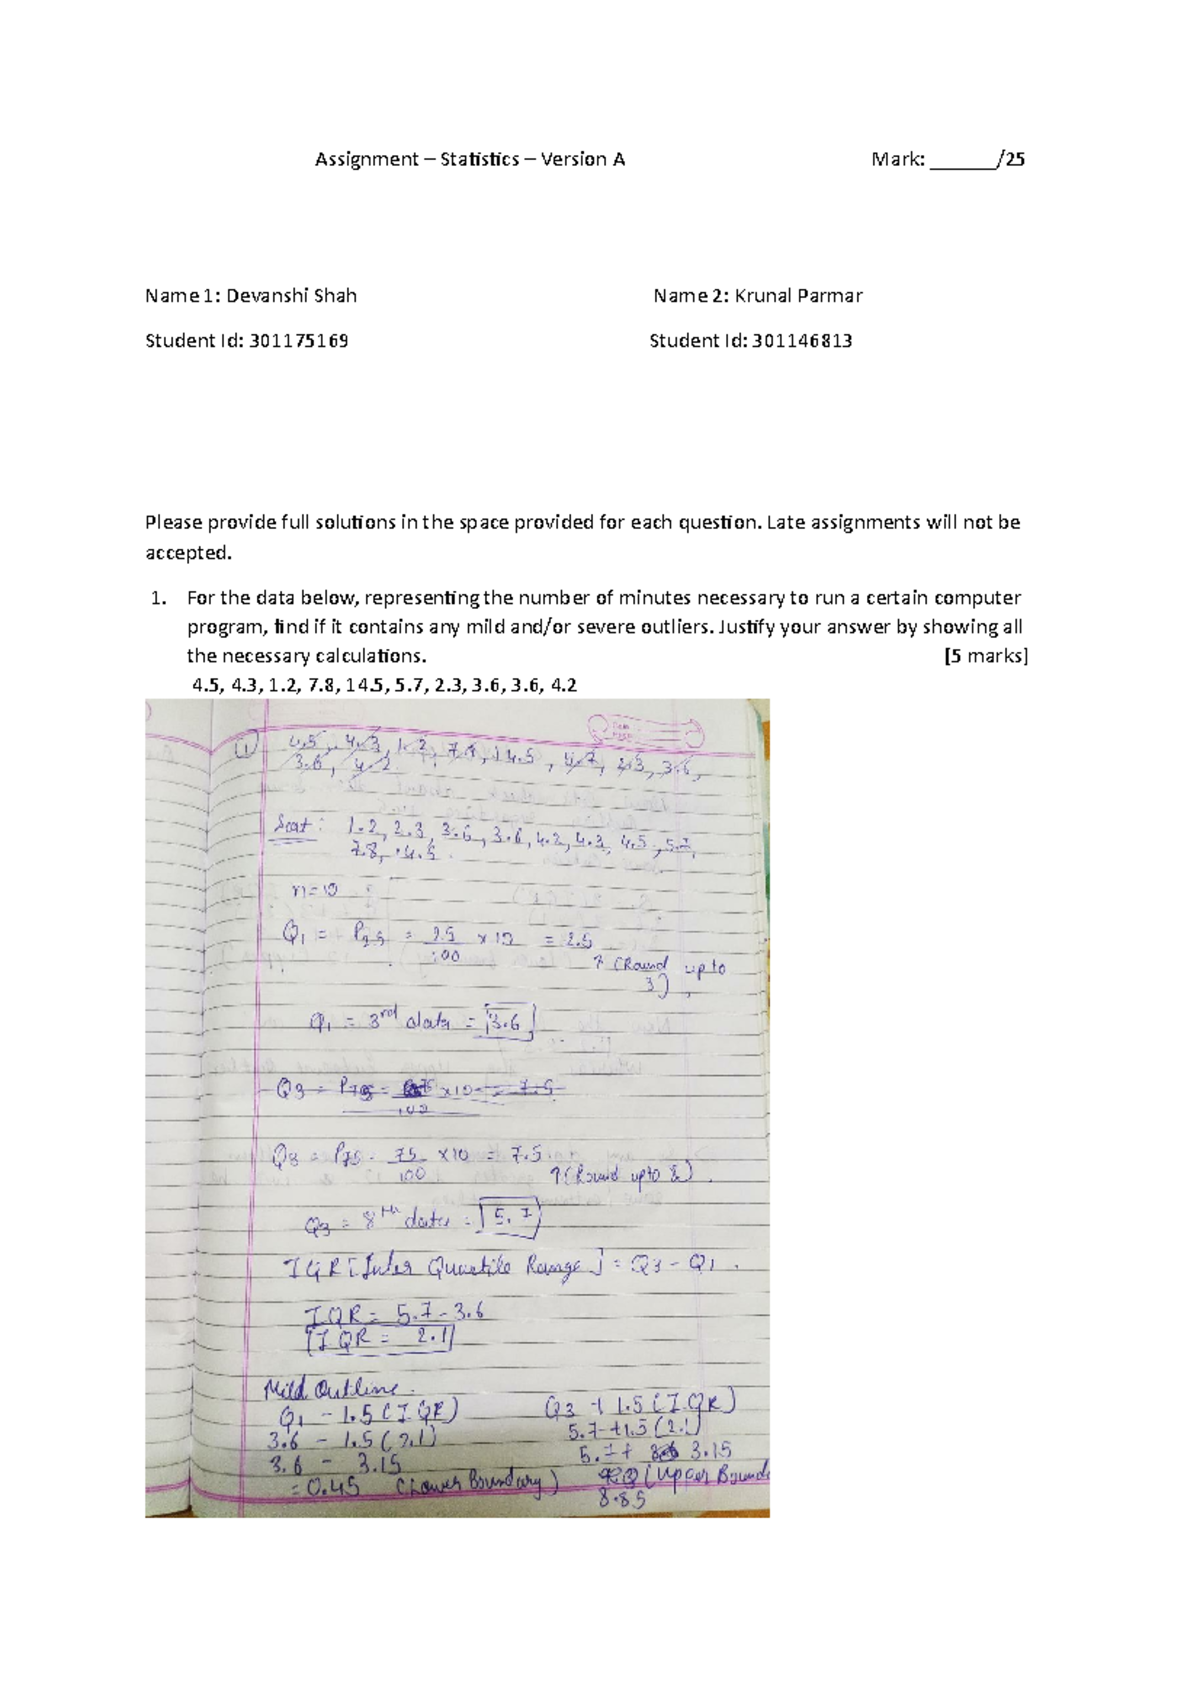 Assignment – Statistics – Version A Mark: ______/25
Name 1: Devanshi Shah Name 2: Krunal Parmar
Student Id: 301175169 Student Id: 301146813
Please provide full solutions in the space provided for each question. Late assignments will not be
accepted.
1. For the data below, representing the number of minutes necessary to run a certain computer
program, find if it contains any mild and/or severe outliers. Justify your answer by showing all
the necessary calculations. [5 marks]
4.5, 4.3, 1.2, 7.8, 14.5, 5.7, 2.3, 3.6, 3.6, 4.2
(1) 4.5, 4.3, 1.2, 7.8, 14.5, 2.3, 3.6,
3.6, 4.2
1.2, 2.3, 3.6, 3.6, 4.2, 4.3, 4.5, 5.7,
7.8, 14.5
n=10
Q1 = P25 = 25/100 x 10 = 2.5
↑ (Round up to
3)
Q1 = 3rd data = 3.6
Q3 = P75 = 75/100 x10 = 7.5
Q3 = P75 = 75/100 x10 = 7.5
↑(Round up to 8).
Q3 = 8th data = 5.7
IQR [Inter Quartile Range] = Q3 - Q1.
IQR = 5.7 - 3.6
IQR = 2.1
Mild Outline.
Q1 - 1.5(IQR) Q3 + 1.5(IQR)
3.6 - 1.5(2.1) 5.7+1.5(2.1)
3.6 - 3.15 5.7+ 3.15
= 0.45 (Lower Boundary) (Upper
8.85